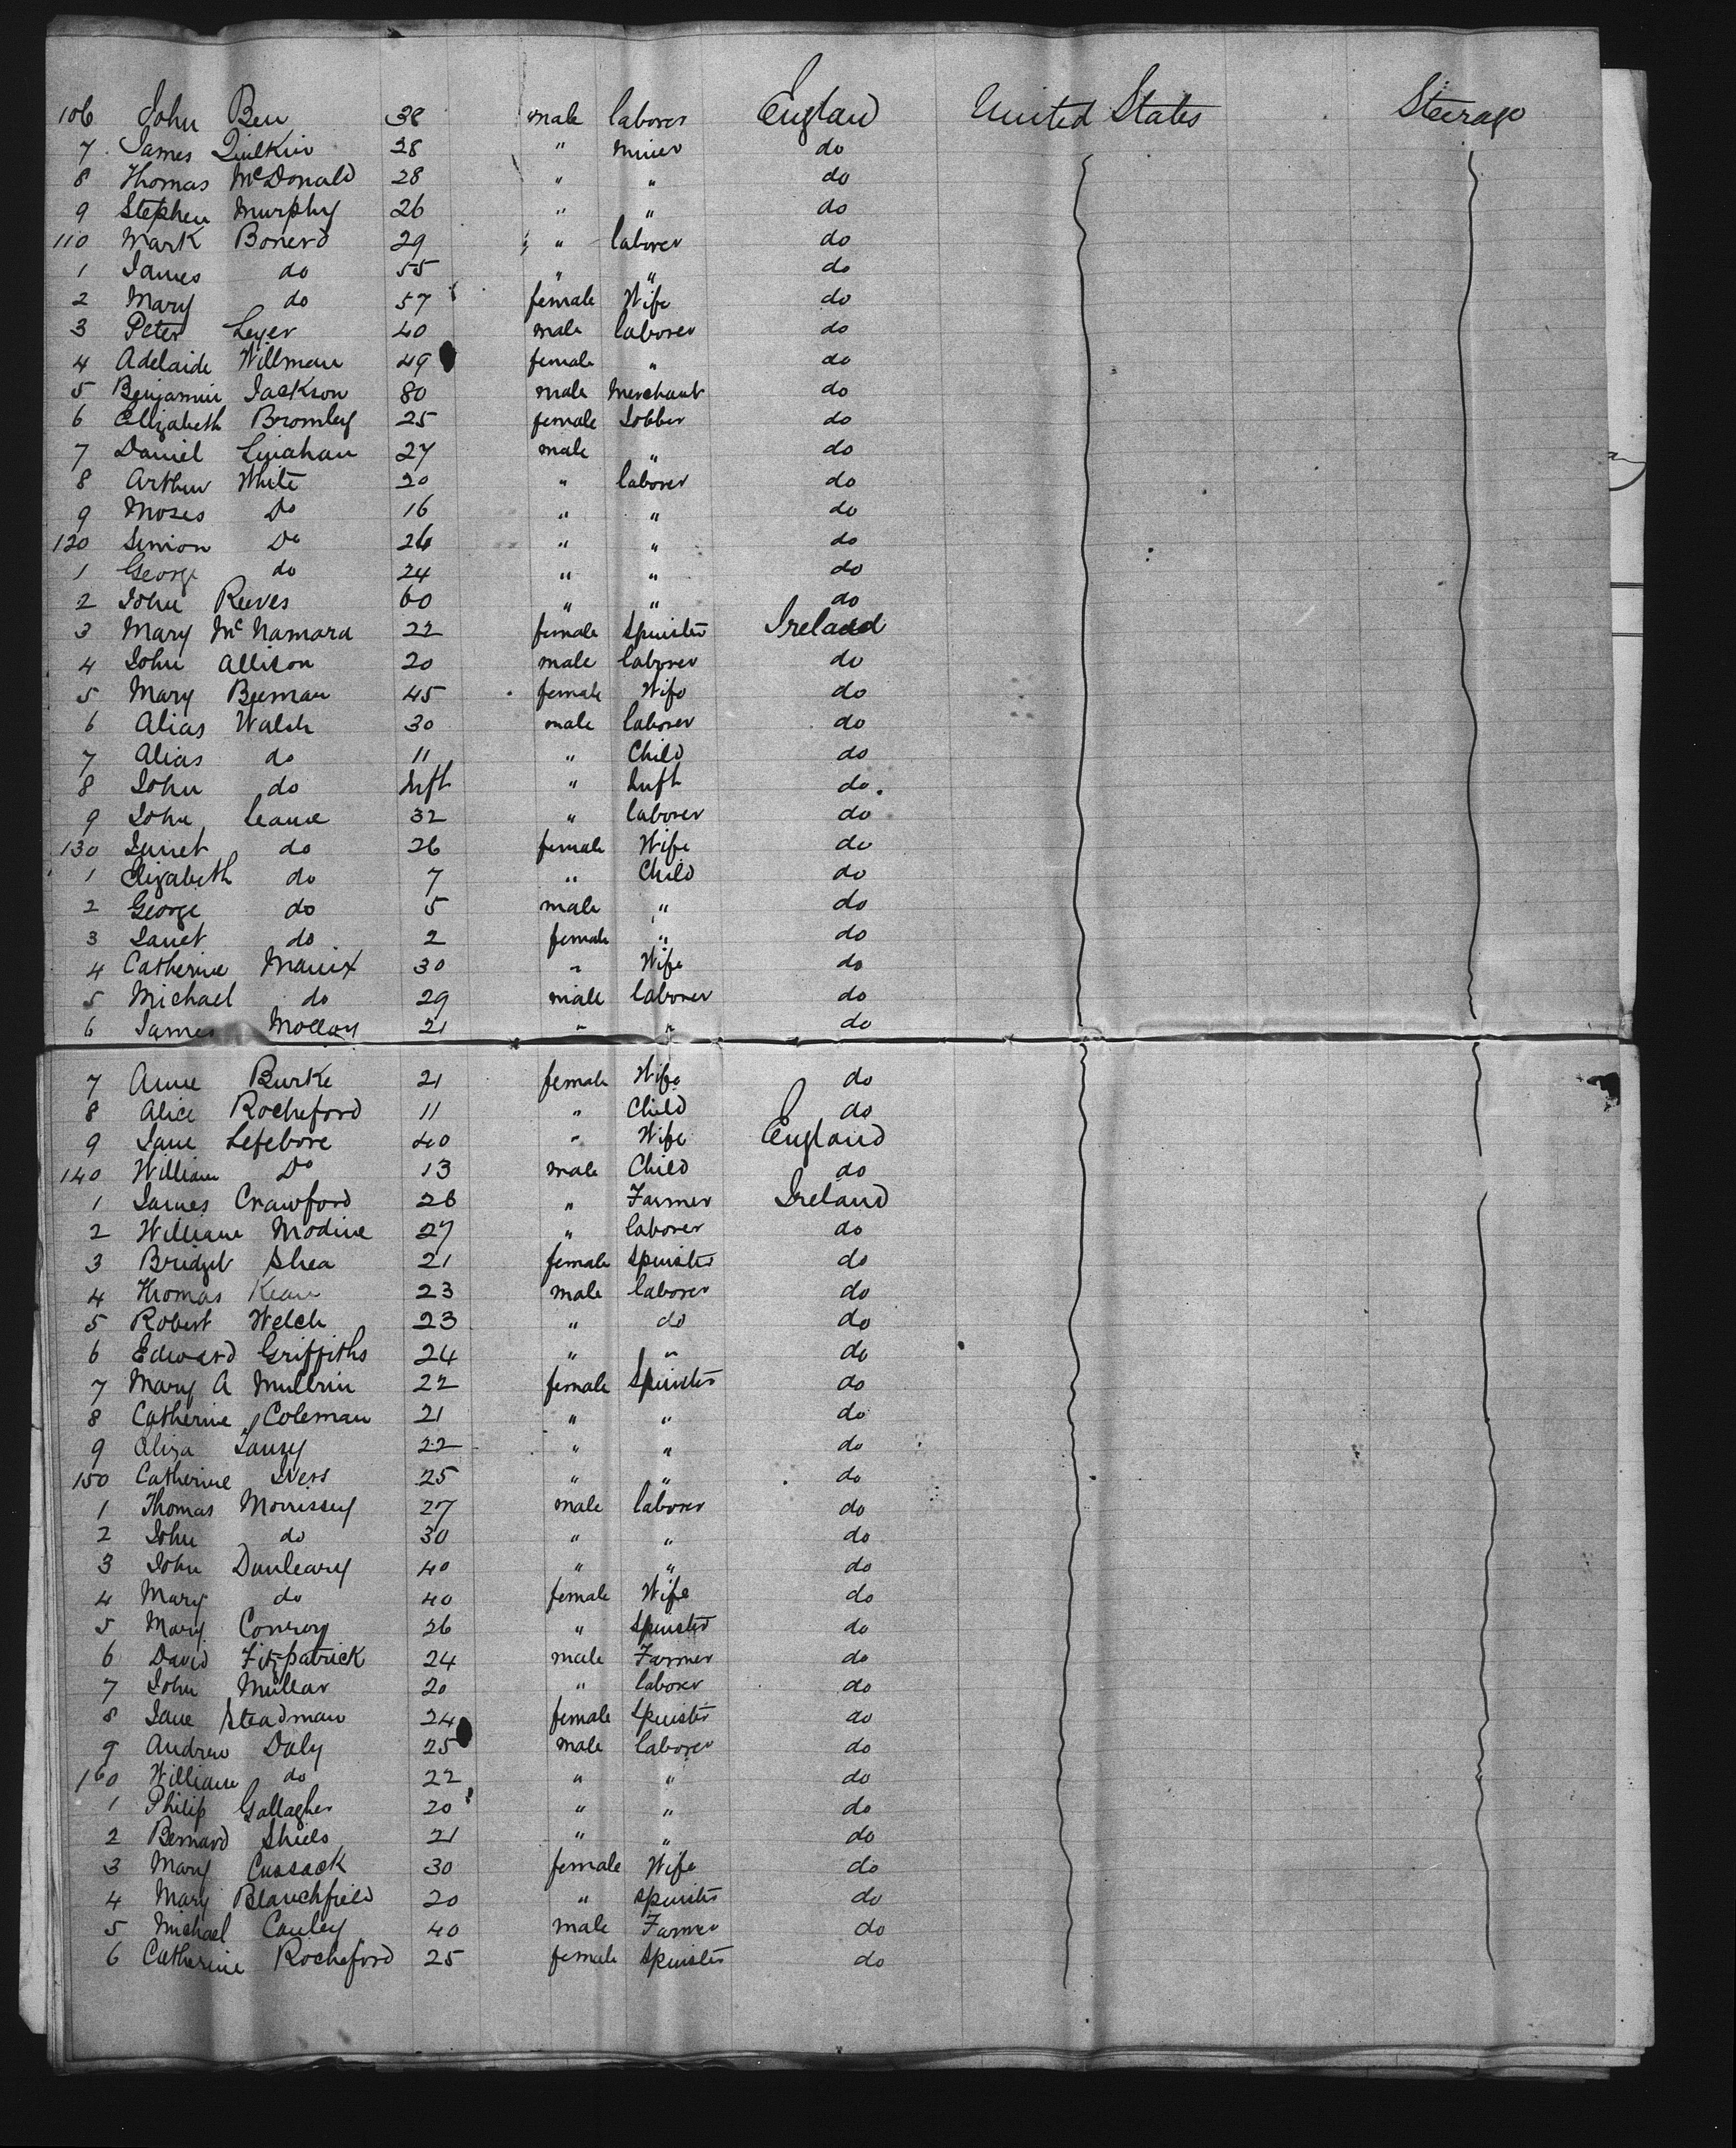 106 John Ben 38 male laborer England United States Steerage
7 James Quilkin 28 " miner do
8 Thomas McDonald 28 " " do
9 Stephen Murphy 26 " " do
110 Mark Bonerd 29 " laborer do
1 James do 55 " " do
2 Mary do 57 female Wife do
3 Peter Leyer 40 male laborer do
4 Adelaide Willman 49 female " do
5 Benjamin Jackson 80 male Merchant do
6 Ellizabeth Bromley 25 female Jobber do
7 Daniel Linahan 27 male " do
8 Arthur White 20 " laborer do
9 Moses Do 16 " " do
120 Simion Do 26 " " do
1 George do 24 " " do
2 John Reeves 60 " " do
3 Mary McNamara 22 female Spinster Ireland
4 John Allison 20 male laborer do
5 Mary Beeman 45 female Wife do
6 Alias Walsh 30 male laborer do
7 Alias do 11 " Child do
8 John do Inft " Inft do.
9 John 32 " laborer do
130 Janet do 26 female Wife do
1 Elizabeth do 7 " Child do
2 George do 5 male " do
3 Janet do 2 female " do
4 Catherine Manix 30 " Wife do
5 Michael do 29 male laborer do
6 James Molloy 21 " " do
7 Anne Burke 21 female Wife do
8 Alice Rocheford 11 " Child do
9 Jane Lefebore 40 " Wife England
140 William Do 13 male Child do
1 James Crawford 28 " Farmer Ireland
2 William Modine 27 " laborer do
3 Bridget Shea 21 female Spinster do
4 Thomas Kean 23 male laborer do
5 Robert Welch 23 " do do
6 Edward Griffiths 24 " " do
7 Mary A Mullrin 22 female Spinster do
8 Catherine Coleman 21 " " do
9 Eliza 22 " " do
150 Catherine Ivers 25 " " do
1 Thomas Morrissey 27 male laborer do
2 John do 30 " " do
3 John Dunleavy 40 " " do
4 Mary do 40 female Wife do
5 Mary Conroy 26 " Spinster do
6 David Fitzpatrick 24 male Farmer do
7 John Mullar 20 " laborer do
8 Jane Steadman 24 female Spinster do
9 Andrew Daly 25 male laborer do
160 William do 22 " " do
1 Philip Gallagher 20 " " do
2 Bernard Shiels 21 " " do
3 Mary Cussack 30 female Wife do
4 Mary Blanchfield 20 " Spinster do
5 Michael Cauley 40 male Farmer do
6 Catherine Rocheford 25 female Spinster do